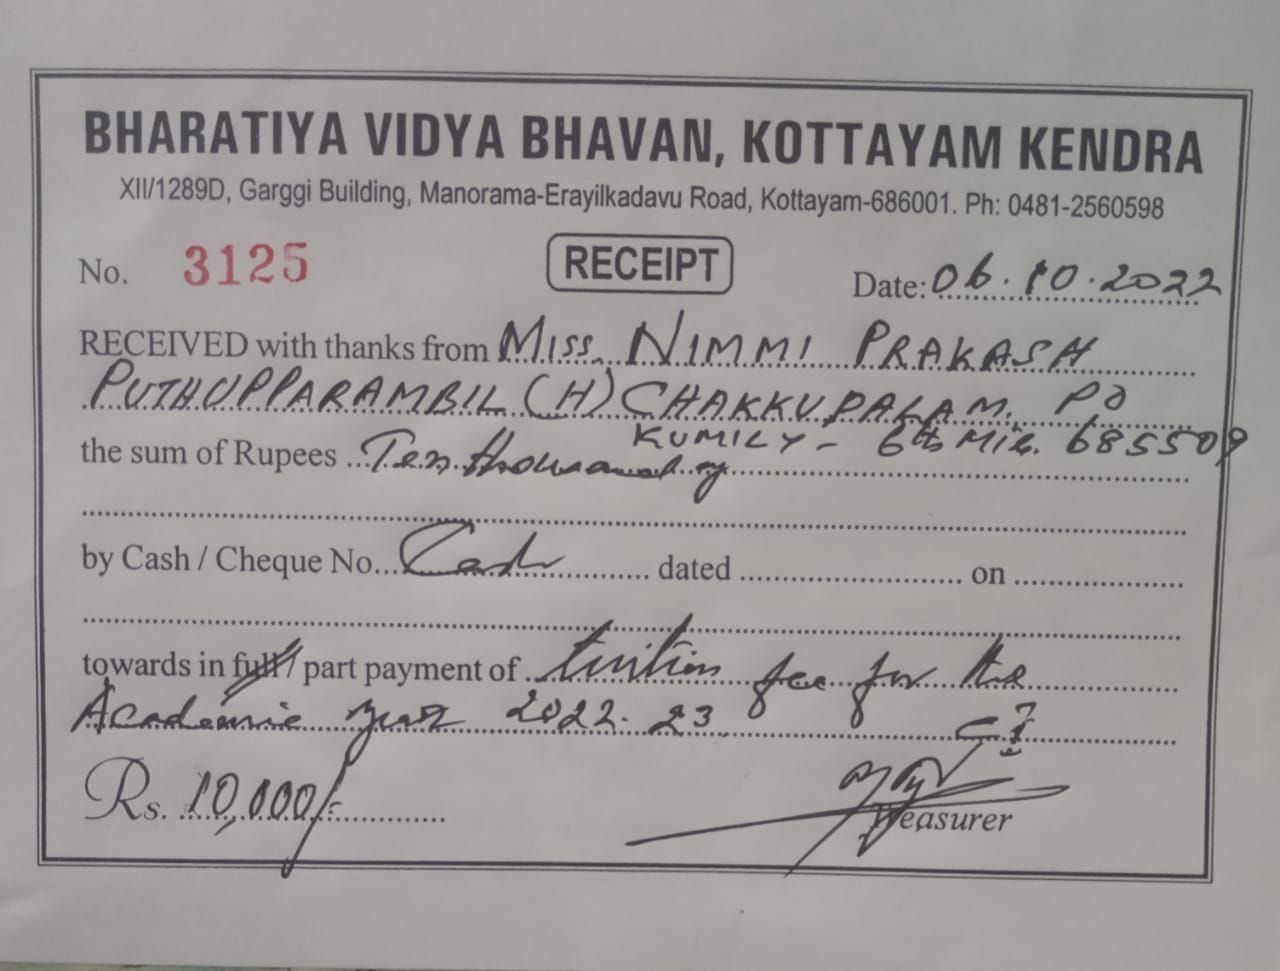 BHARATIYA VIDYA BHAVAN, KOTTAYAM KENDRA
XII/1289D, Garggi Building, Manorama-Erayilkadavu Road, Kottayam-686001. Ph: 0481-2560598
No. 3125 RECEIPT Date: 06.10.2022
RECEIVED with thanks from Miss. NIMMI PRAKASH
PUTHUPPARAMBIL (H) CHAKKUPALAM. PO
KUMILY - 6th Mile. 685509
the sum of Rupees Ten thousand
by Cash / Cheque No. Cash dated on
towards in full / part payment of tuition fee for the
Academic year 2022-23
Rs. 10,000/-
Treasurer